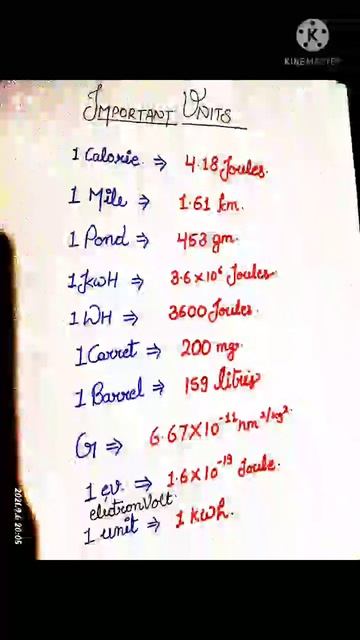 KINEMASTER
IMPORTANT UNITS
1 Calorie ⇒ 4.18 Joules.
1 Mile ⇒ 1.61 km.
1 Pond ⇒ 453 gm.
1 kwH ⇒ 3.6×10⁶ Joules
1 WH ⇒ 3600 Joules.
1 Carret ⇒ 200 mg.
1 Barrel ⇒ 159 litris
G ⇒ 6.67×10⁻¹¹ nm²/kg².
1 ev. ⇒ 1.6×10⁻¹⁹ Joule.
elctronVolt.
1 unit ⇒ 1 kwh.
2021.7.6 20:05